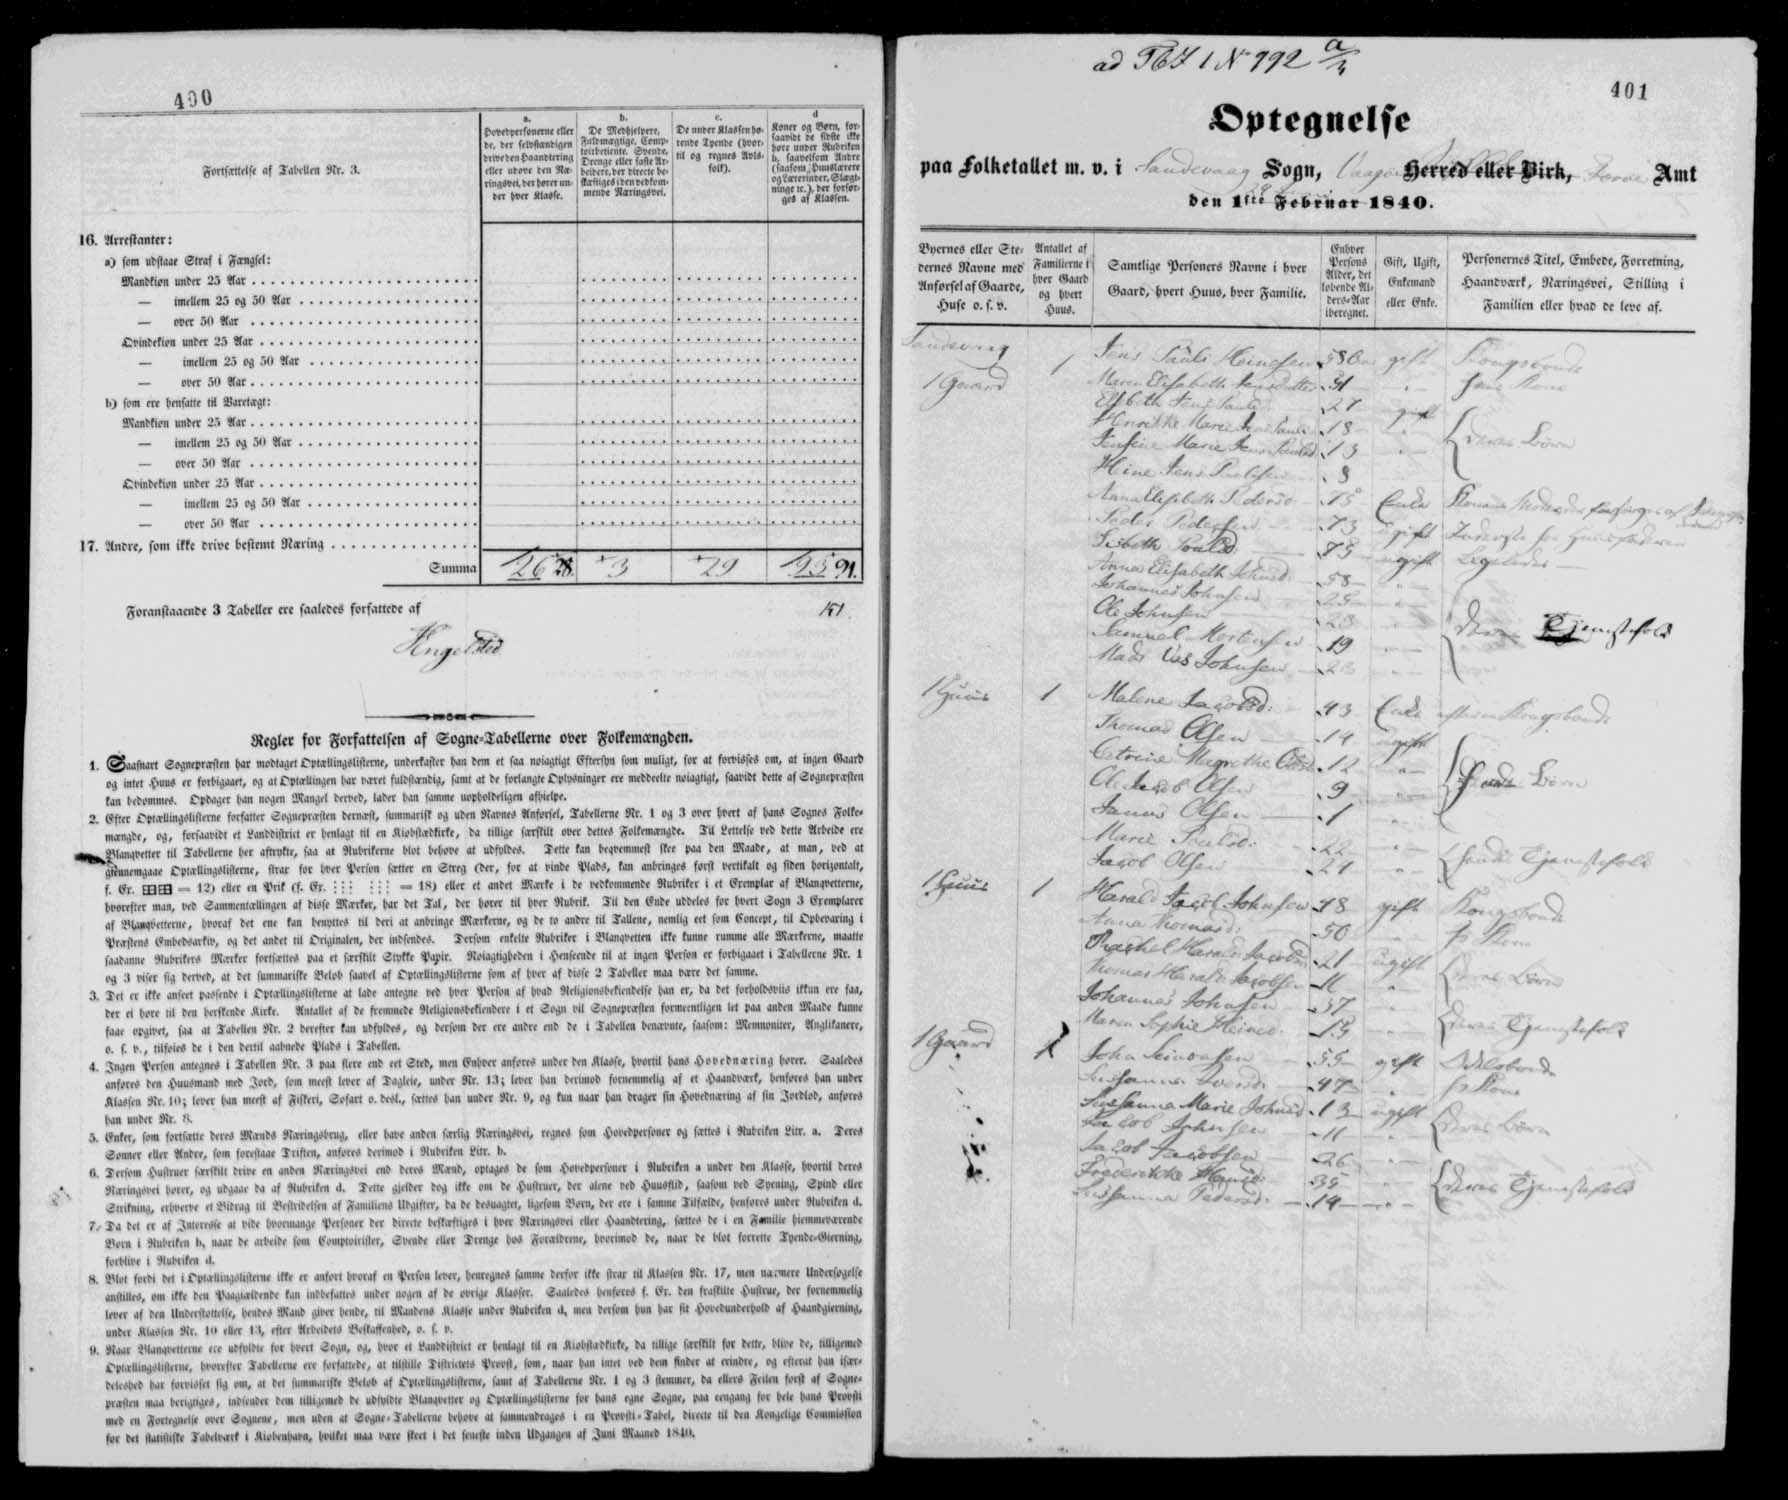 400
Fortsættelse af Tabellen Nr. 3.
a.
Hovedpersonerne eller
de, der selvstændigen
drive den Haandtering
eller udøve den Næ-
ringsvei, der hører un-
der hver Klasse.
b.
De Medhjelpere,
Fuldmægtige, Comp-
toirbetiente, Svende,
Drenge eller faste Ar-
beidere, der directe be-
skæftiges i den vedkom-
mende Næringsvei.
c.
De under Klassen hø-
rende Tyende (hvor-
til og regnes Avls-
folk).
d
Koner og Børn, for-
saavidt de sidste ikke
høre under Rubriken
b, saavelsom Andre
(saasom: Huuslærere
og Lærerinder, Slægt-
ninge ꝛc.), der forsør-
ges af Klassen.
16. Arrestanter:
a) som udstaae Straf i Fængsel:
Mandkiøn under 25 Aar
— imellem 25 og 50 Aar
— over 50 Aar
Qvindekiøn under 25 Aar
— imellem 25 og 50 Aar
— over 50 Aar
b) som ere hensatte til Varetægt:
Mandkiøn under 25 Aar
— imellem 25 og 50 Aar
— over 50 Aar
Qvindekiøn under 25 Aar
— imellem 25 og 50 Aar
— over 50 Aar
17. Andre, som ikke drive bestemt Næring
Summa 26 28. 3 29 93 91.
Foranstaaende 3 Tabeller ere saaledes forfattede af 151.
Regler for Forfattelsen af Sogne-Tabellerne over Folkemængden.
1. Saasnart Sognepræsten har modtaget Optællingslisterne, underkaster han dem et saa nøiagtigt Eftersyn som muligt, for at forvisses om, at ingen Gaard
og intet Huus er forbigaaet, og at Optællingen har været fuldstændig, samt at de forlangte Oplysninger ere meddeelte nøiagtigt, saavidt dette af Sognepræsten
kan bedømmes. Opdager han nogen Mangel derved, lader han samme uopholdeligen afhielpe.
2. Efter Optællingslisterne forfatter Sognepræsten dernæst, summarisk og uden Navnes Anførsel, Tabellerne Nr. 1 og 3 over hvert af hans Sognes Folke-
mængde, og, forsaavidt et Landdistrict er henlagt til en Kiøbstædkirke, da tillige særskilt over dettes Folkemængde. Til Lettelse ved dette Arbeide ere
Blanqvetter til Tabellerne her aftrykte, saa at Rubrikerne blot behøve at udfyldes. Dette kan beqvemmest skee paa den Maade, at man, ved at
giennemgaae Optællingslisterne, strax for hver Person sætter en Streg (der, for at vinde Plads, kan anbringes først vertikalt og siden horizontalt,
f. Ex. = 12) eller en Prik (f. Ex. ⋮⋮⋮ ⋮⋮⋮ = 18) eller et andet Mærke i de vedkommende Rubriker i et Exemplar af Blanqvetterne,
hvorefter man, ved Sammentællingen af disse Mærker, har det Tal, der hører til hver Rubrik. Til den Ende uddeles for hvert Sogn 3 Exemplarer
af Blanqvetterne, hvoraf det ene kan benyttes til deri at anbringe Mærkerne, og de to andre til Tallene, nemlig eet som Concept, til Opbevaring i
Præstens Embedsarkiv, og det andet til Originalen, der indsendes. Dersom enkelte Rubriker i Blanqvetten ikke kunne rumme alle Mærkerne, maatte
saadanne Rubrikers Mærker fortsættes paa et særskilt Stykke Papir. Nøiagtigheden i Henseende til at ingen Person er forbigaaet i Tabellerne Nr. 1
og 3 viser sig derved, at det summariske Beløb saavel af Optællingslisterne som af hver af disse 2 Tabeller maa være det samme.
3. Det er ikke anseet passende i Optællingslisterne at lade antegne ved hver Person af hvad Religionsbekiendelse han er, da det forholdsviis ikkun ere faa,
der ei høre til den herskende Kirke. Antallet af de fremmede Religionsbekiendere i et Sogn vil Sognepræsten formeentligen let paa anden Maade kunne
faae opgivet, saa at Tabellen Nr. 2 derefter kan udfyldes, og dersom der ere andre end de i Tabellen benævnte, saasom: Memnoniter, Anglikanere,
o. s. v., tilføies de i den dertil aabnede Plads i Tabellen.
4. Ingen Person antegnes i Tabellen Nr. 3 paa flere end eet Sted, men Enhver anføres under den Klasse, hvortil hans Hovednæring hører. Saaledes
anføres den Huusmand med Jord, som meest lever af Dagleie, under Nr. 13; lever han derimod fornemmelig af et Haandværk, henføres han under
Klassen Nr. 10; lever han meest af Fiskeri, Søfart o. desl., sættes han under Nr. 9, og kun naar han drager sin Hovednæring af sin Jordlod, anføres
han under Nr. 8.
5. Enker, som fortsætte deres Mænds Næringsbrug, eller have anden særlig Næringsvei, regnes som Hovedpersoner og sættes i Rubriken Litr. a. Deres
Sønner eller Andre, som forestaae Driften, anføres derimod i Rubriken Litr. b.
6. Dersom Hustruer særskilt drive en anden Næringsvei end deres Mænd, optages de som Hovedpersoner i Rubriken a under den Klasse, hvortil deres
Næringsvei hører, og udgaae da af Rubriken d. Dette gjelder dog ikke om de Hustruer, der alene ved Huusflid, saasom ved Spening, Spind eller
Strikning, erhverve et Bidrag til Bestridelsen af Familiens Udgifter, da de desuagtet, ligesom Børn, der ere i samme Tilfælde, henføres under Rubriken d.
7. Da det er af Interesse at vide hvormange Personer der directe beskæftiges i hver Næringsvei eller Haandtering, sættes de i en Familie hiemmeværende
Børn i Rubriken b, naar de arbeide som Comptoirister, Svende eller Drenge hos Forældrene, hvorimod de, naar de blot forrette Tyende-Gierning,
forblive i Rubriken d.
8. Blot fordi det i Optællingslisterne ikke er anført hvoraf en Person lever, henregnes samme derfor ikke strax til Klassen Nr. 17, men nærmere Undersøgelse
anstilles, om ikke den Paagiældende kan indbefattes under nogen af de øvrige Klasser. Saaledes henføres f. Ex. den fraskilte Hustrue, der fornemmelig
lever af den Understøttelse, hendes Mand giver hende, til Mandens Klasse under Rubriken d, men dersom hun har sit Hovedunderhold af Haandgierning,
under Klassen Nr. 10 eller 13, efter Arbeidets Beskaffenhed, o. s. v.
9. Naar Blanqvetterne ere udfyldte for hvert Sogn, og, hvor et Landdistrict er henlagt til en Kiøbstædkirke, da tillige særskilt for dette, blive de, tilligemed
Optællingslisterne, hvorefter Tabellerne ere forfattede, at tilstille Districtets Provst, som, naar han intet ved dem finder at erindre, og efterat han især-
deleshed har forvisset sig om, at det summariske Beløb af Optællingslisterne, samt af Tabellerne Nr. 1 og 3 stemmer, da ellers Feilen først af Sogne-
præsten maa berigtiges, indsender dem tilligemed de udfyldte Blanqvetter og Optællingslisterne for hans egne Sogne, paa eengang for hele hans Provsti
med en Fortegnelse over Sognene, men uden at Sogne-Tabellerne behøve at sammendrages i en Provsti-Tabel, directe til den Kongelige Commission
for det statistiske Tabelværk i Kiøbenhavn, hvilket maa være skeet i det seneste inden Udgangen af Juni Maaned 1840.
401
Optegnelse
paa Folketallet m. v. i Sandevaag Sogn, Vaagøe Herred eller Birk, Færøe Amt
den 1ste Februar 1840.
Byernes eller Ste-
dernes Navne med
Anførsel af Gaarde,
Huse o. s. v.
Antallet af
Familierne i
hver Gaard
og hvert
Huus.
Samtlige Personers Navne i hver
Gaard, hvert Huus, hver Familie.
Enhver
Persons
Alder, det
løbende Al-
ders-Aar
iberegnet.
Gift, Ugift,
Enkemand
eller Enke.
Personernes Titel, Embede, Forretning,
Haandværk, Næringsvei, Stilling i
Familien eller hvad de leve af.
Sandevaag 1 Jens Paule Heinesen 58 gift Kongsbonde
1 Gaard Maren Elisabeth 51 hans Kone
Elsbeth Jens 27 ugift
Henrikke Marie Jens 18
Jensine Marie Jens 13 deres Børn
Heine Jens 8
Anna Elisabeth 75 Enke
Peder Pedersen 73 ugift
Lisbeth 75 ugift Ligeledes
Anna Elisabeth 58
Johannes Johnsen 25
Ole Johnsen 23 deres Tjenestefolk
Samuel Mortensen 19
Mads Johnsen 23
1 Huus 1 Malene Jacobsd: 43 Enke Kongsbonde
Thomas Olsen 14 ugift
Catrine Magrethe 12
Ole Jacob Olsen 9 Børn
Olsen 1
Marie 22 Tjenestefolk
Jacob Olsen 21
1 Huus 1 Harald Jacob Johnsen 48 gift Kongsbonde
Anna Thomasd: 50 Kone
Rachel Harald 21 ugift
Thomas Harald Jacobsen 11 deres Børn
Johannes Johnsen 37
Maren Sophie 15 deres Tjenestefolk
1 Gaard 1 John Simonsen 55 gift Odelsbonde
Susanna 47 Kone
Susanna Marie 13 ugift
Jacob Johnsen 11 deres Børn
Jacob Jacobsen 26
Frederikke 35 deres Tjenestefolk
Susanna Pedersd: 14